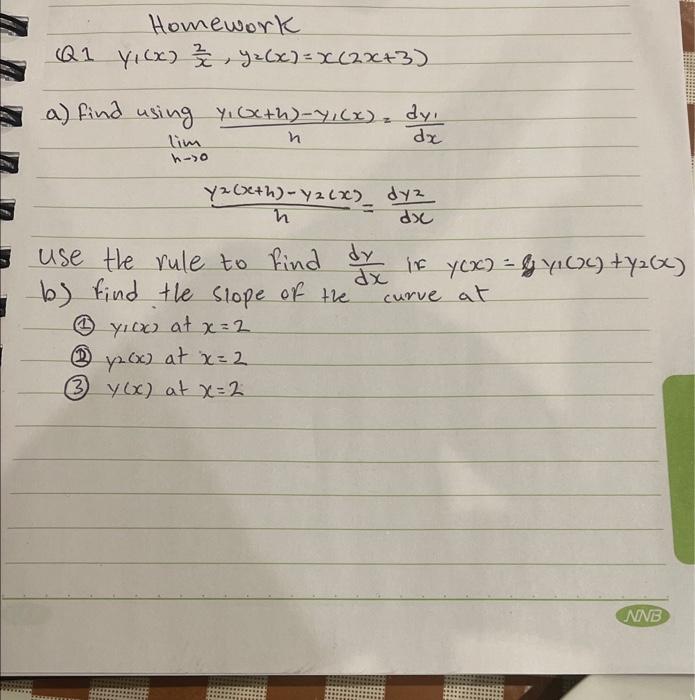 Homework
Q1 y₁(x) 2/x , y₂(x)=x(2x+3)
a) find using lim h→0 (y₁(x+h)-y₁(x))/h = dy₁/dx
(y₂(x+h)-y₂(x))/h = dy₂/dx
use the rule to find dy/dx if y(x) = y₁(x)+y₂(x)
b) find the slope of the curve at
① y₁(x) at x=2
② y₂(x) at x=2
③ y(x) at x=2
NNB